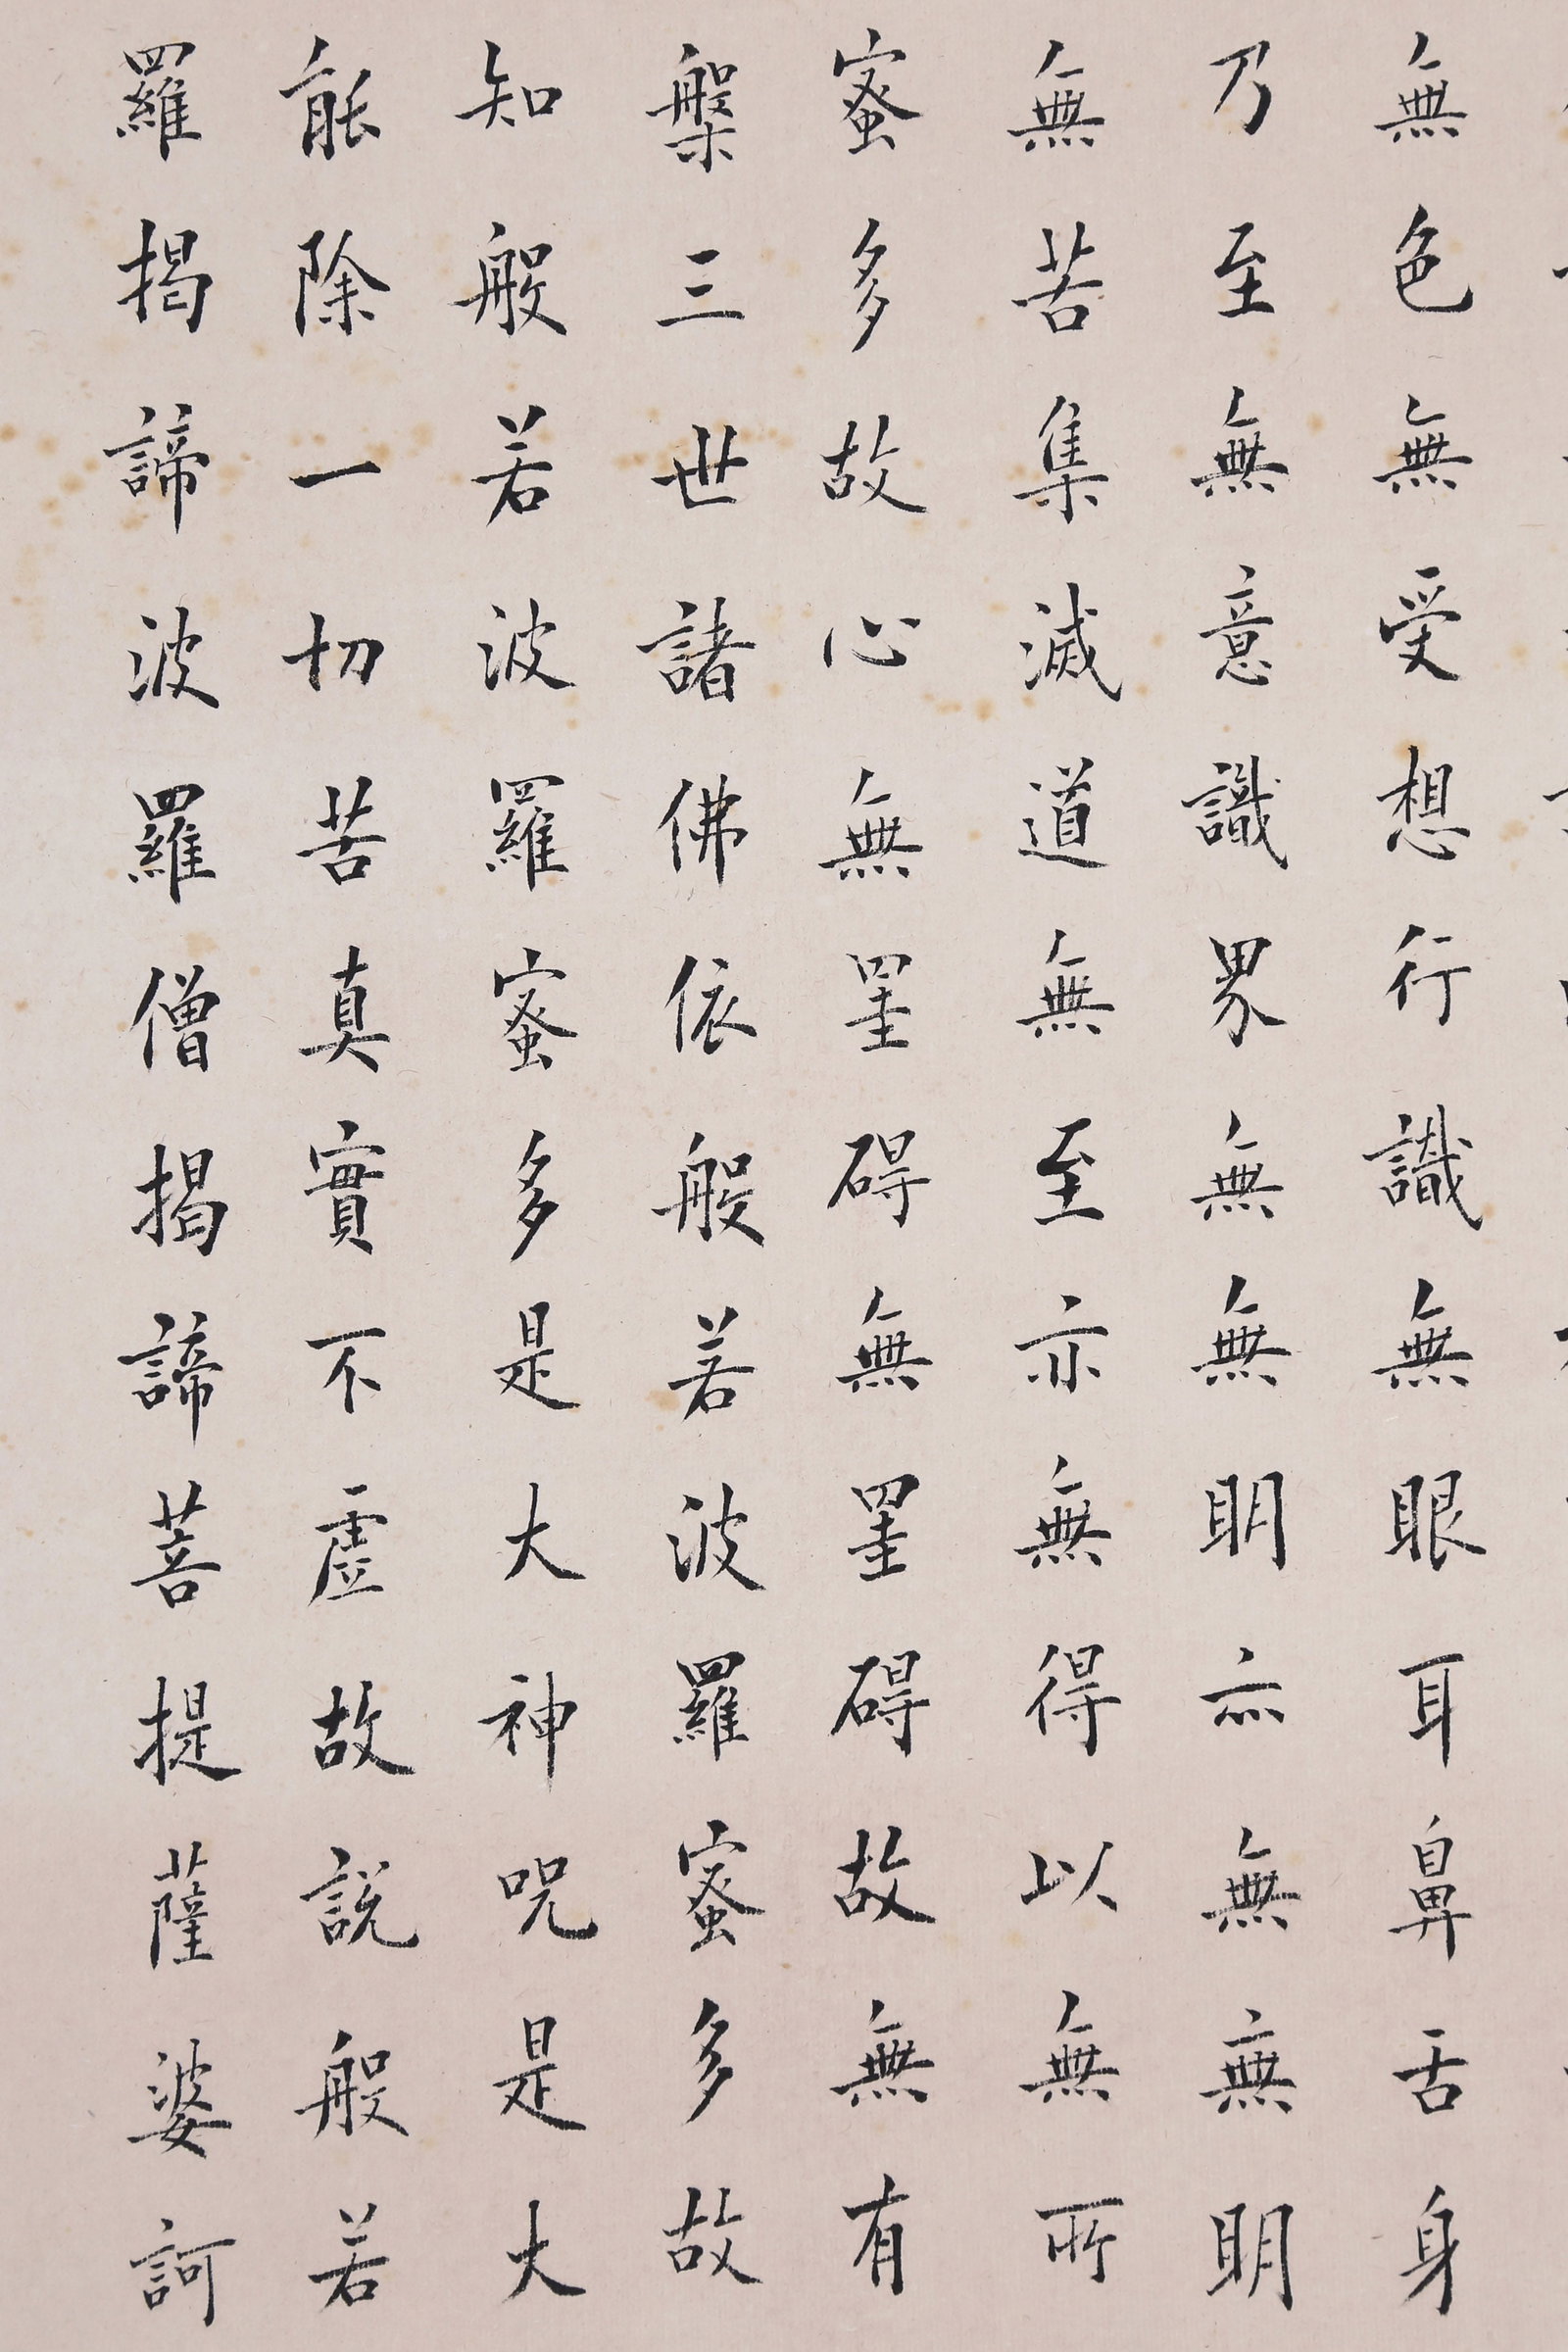 無色無受想行識無眼耳鼻舌身
乃至無意識界無無明亦無無明
無苦集滅道無至亦無得以無所
蜜多故心無罣碍無罣碍故無有
槃三世諸佛依般若波羅蜜多故
知般若波羅蜜多是大神咒是大
能除一切苦真實不虛故說般若
羅揭諦波羅僧揭諦菩提薩婆訶